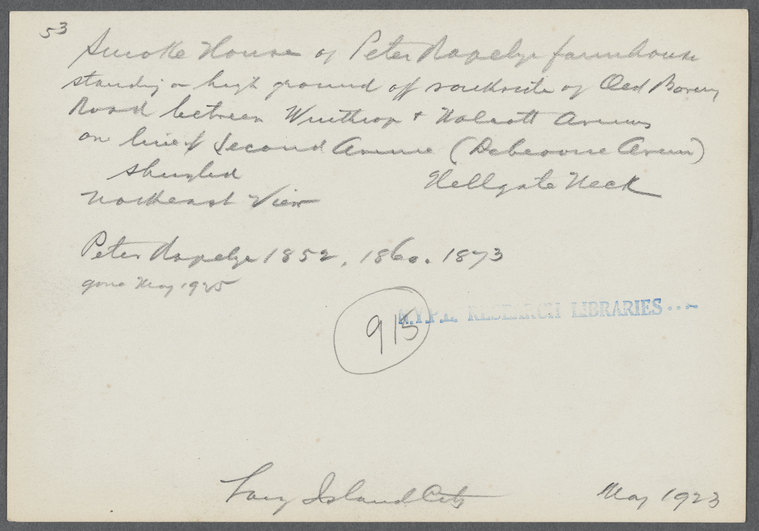 53
Smoke House of Peter Rapelye farmhouse
standing on high ground off southside of Old Bowery
Road between Winthrop + Wolcott Avenues
on line of Second Avenue (Debevoise Avenue)
shingled Hellgate Neck
Northeast View
Peter Rapelye 1852, 1860. 1873
gone May 1925
915
N.Y.P.L. RESEARCH LIBRARIES
Long Island City May 1923